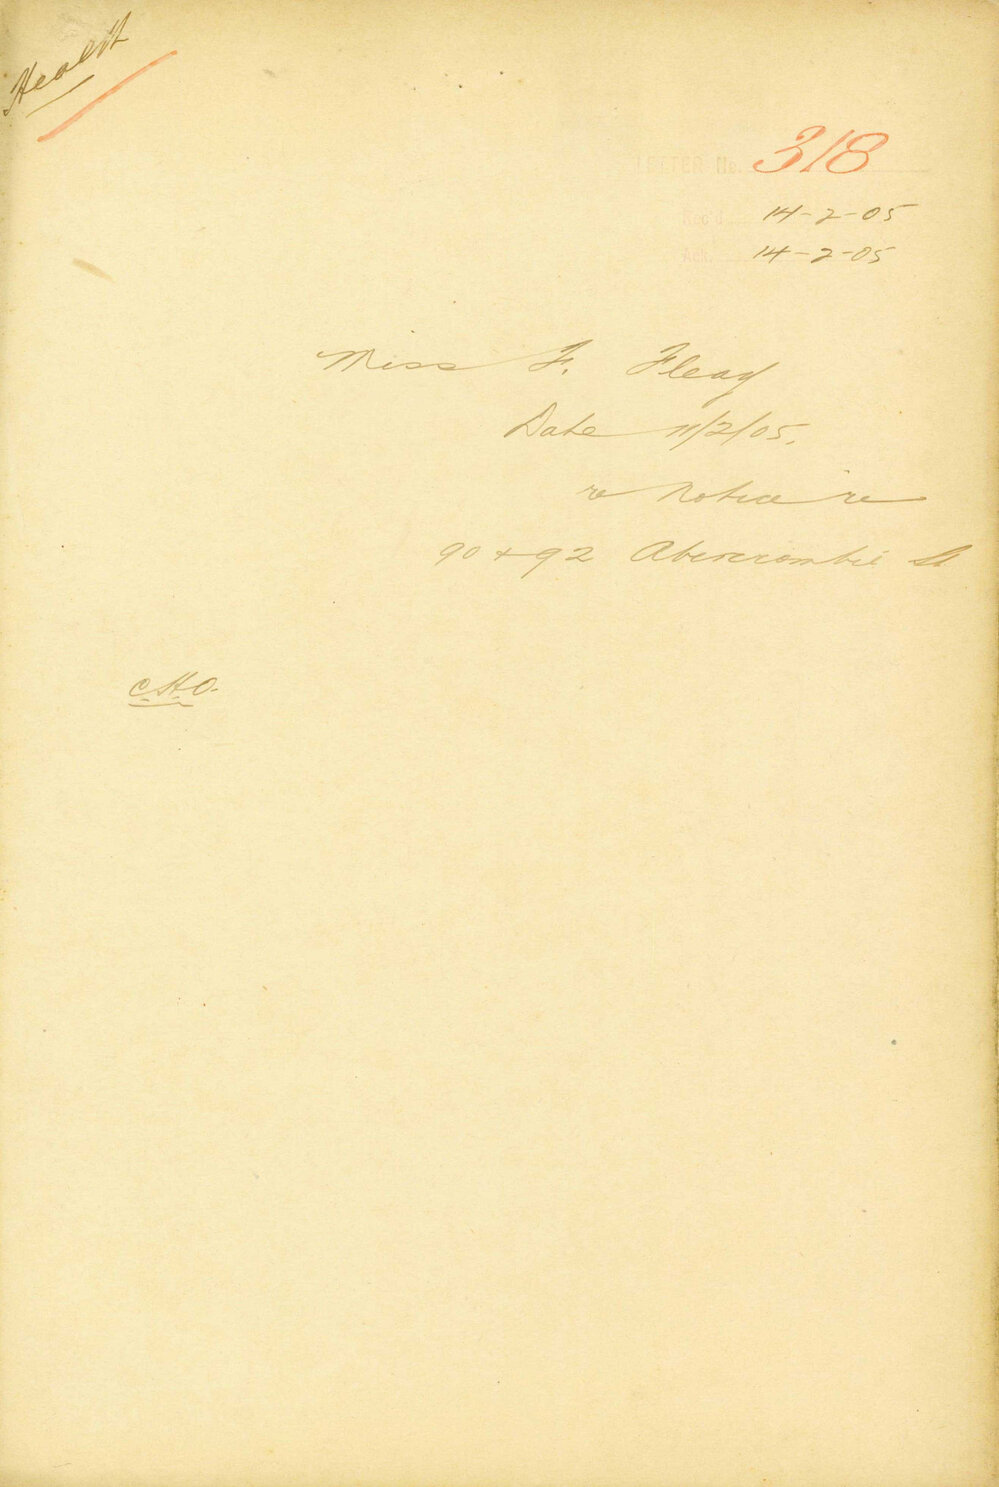 Health
LETTER No. 318
Rec'd 14-2-05
Ack. 14-2-05
Miss F. Fleay
Date 11/2/05.
re Notice re
90 + 92 Abercrombie St
C.H.O.